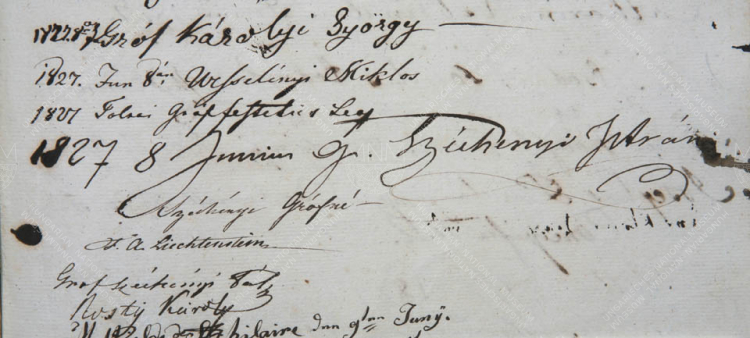 Gróf Károlyi György
1827. Jun 8án Wesselényi Miklos
1827 Tolnai Gróf Festetics Leo
1827 8 Junius G. Széchenyi István
Széchényi Grófné
F. A. Liechtenstein
Gróf Széchényi Pál
Rosty Károly
hilaire den 9ten Juny.